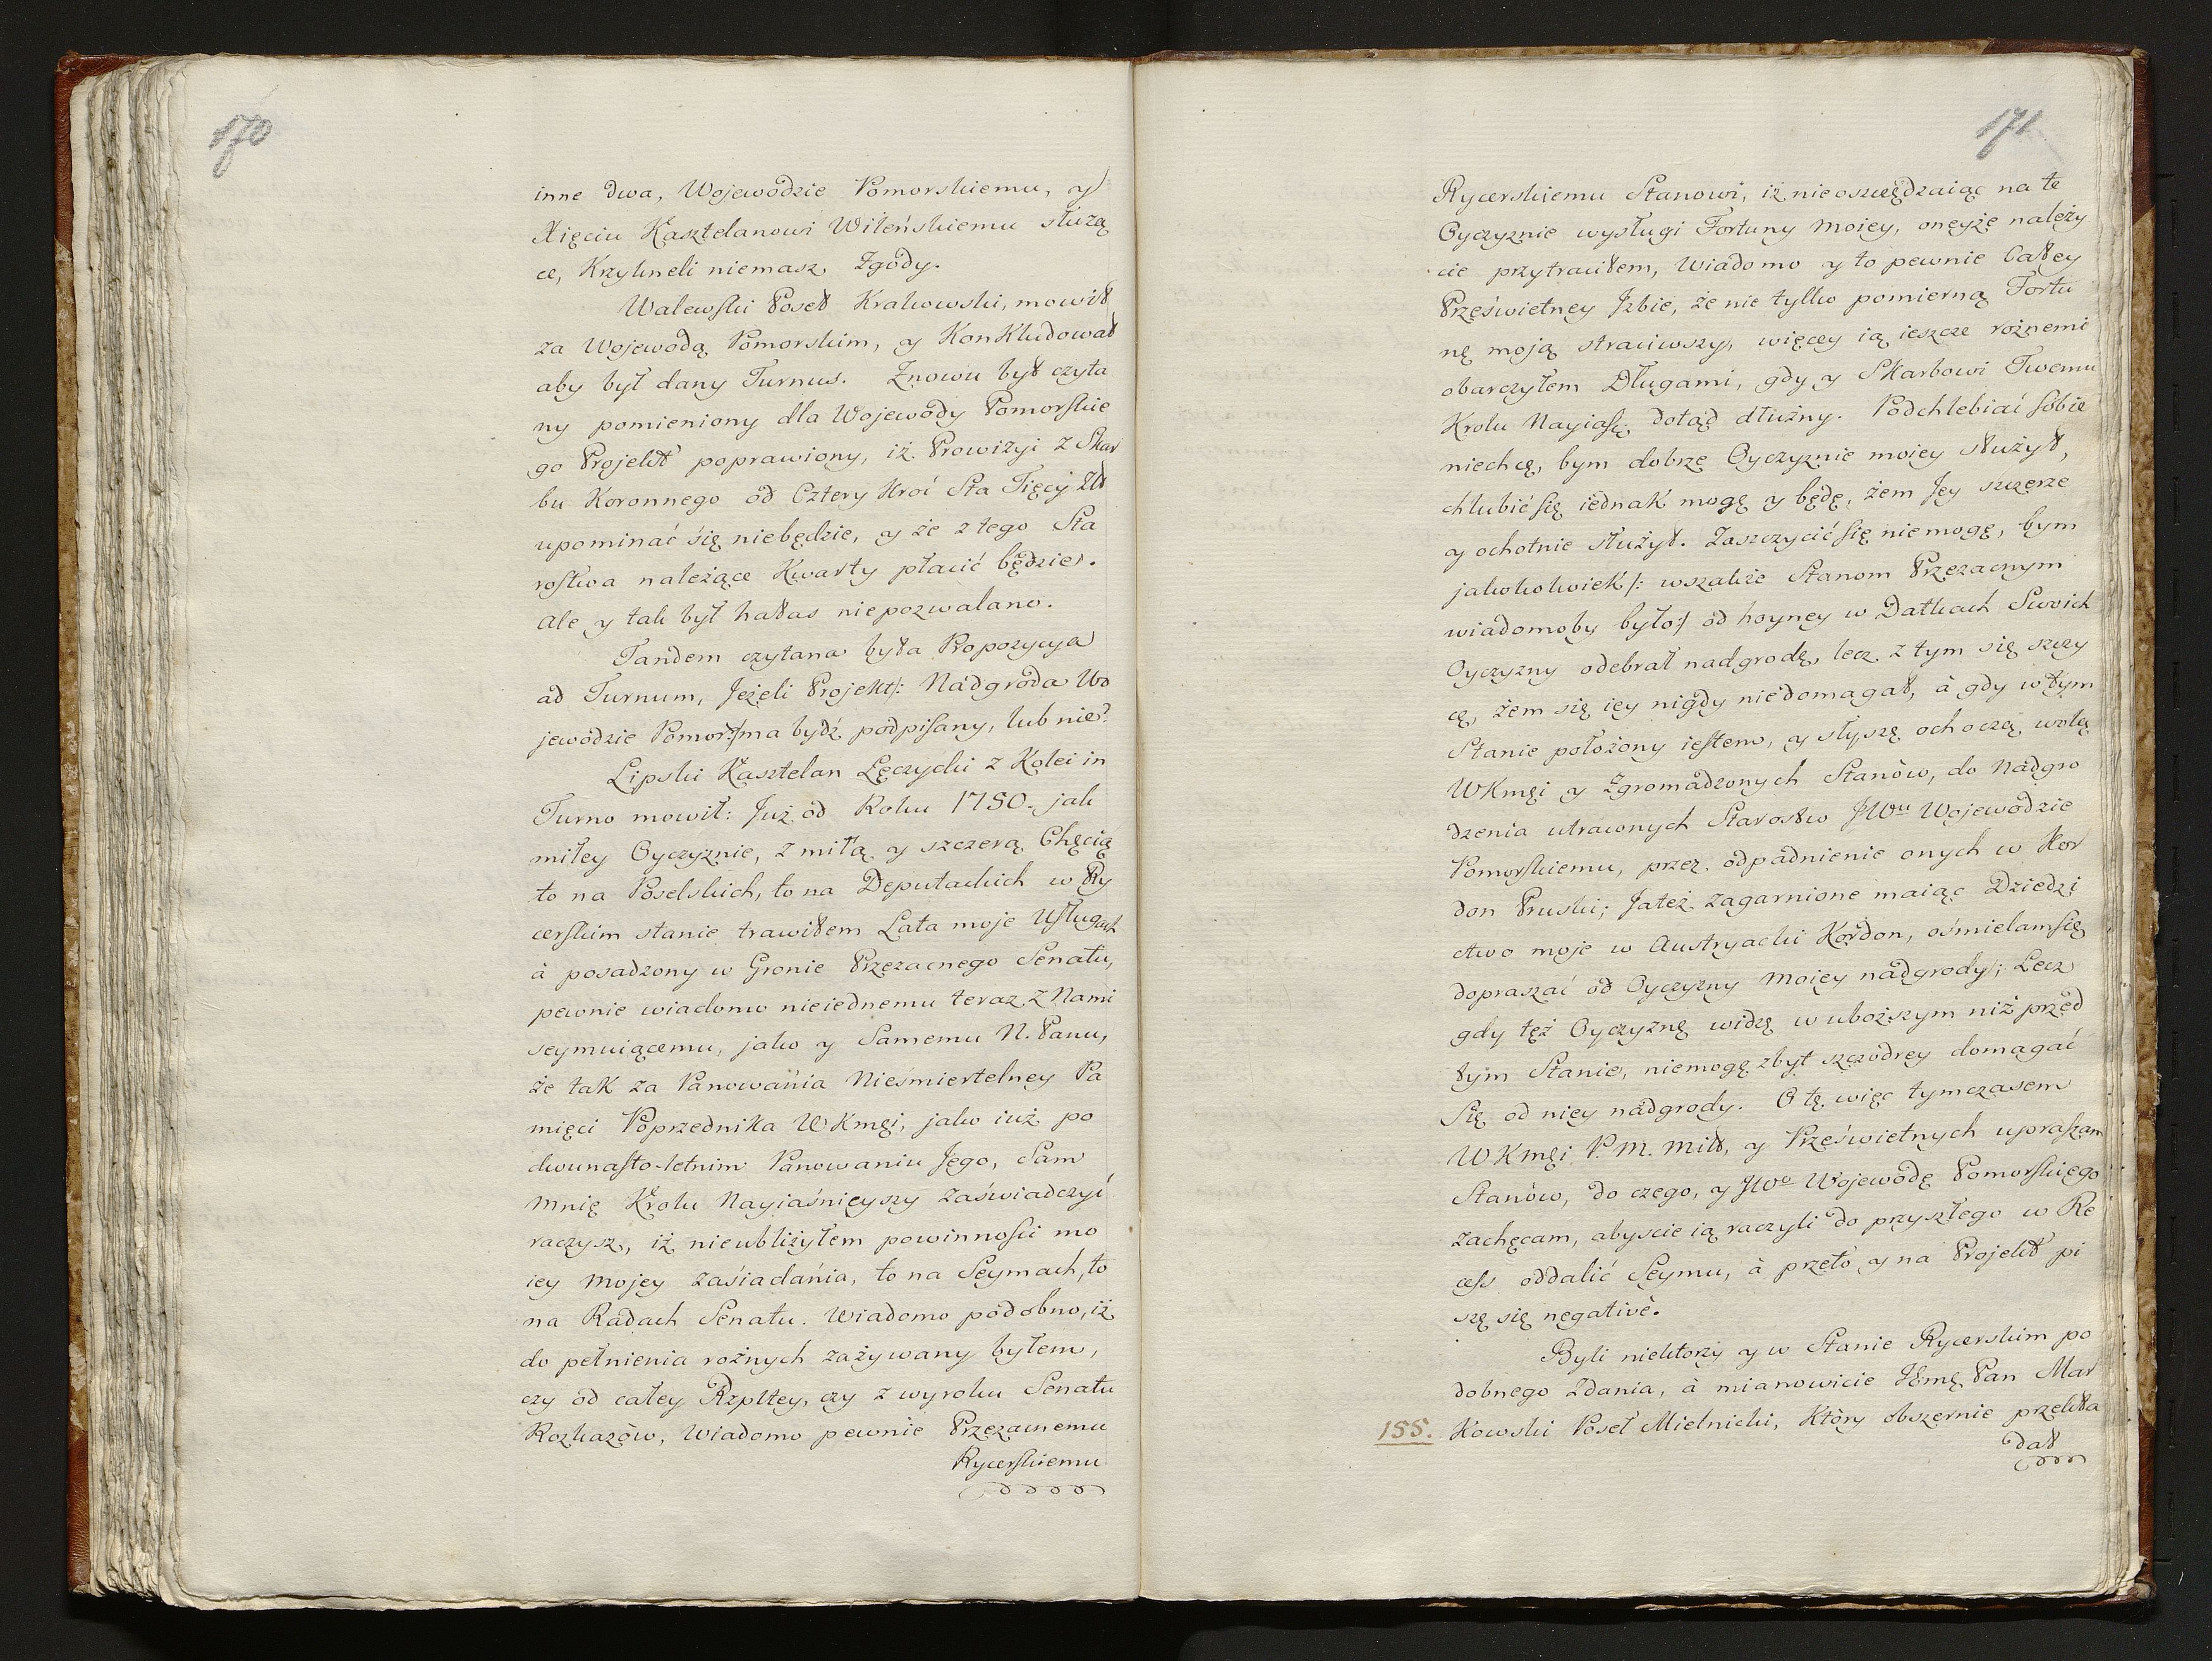 170
inne dwa, Wojewodzie Pomorskiemu, y
Xięciu Kasztelanowi Wileńskiemu służą
ce, Krzykneli niemasz Zgody.
Walewski Poseł Krakowski, mowił
za Wojewodą Pomorskim, y Konkludował
aby był dany Turnus. Znowu był czyta
ny pomieniony dla Wojewody Pomorskie
go Projekt poprawiony, iż Prowizyi z Skar
bu Koronnego od Cztery Kroć Sta Tięcy Zł
upominać się niebędzie, y że z tego Sta
rostwa należące Kwarty płacić będzie.
ale y tak był hałas niepozwalano.
Tandem czytana była Propozycya
ad Turnum, Jeżeli Projekt/: Nadgroda Wo
jewodzie Pomor:/ ma bydź podpisany, lub nie?
Lipski Kasztelan Łęczycki z Kolei in
Turno mowił: Już od Roku 1750. jak
miłey Oyczyznie, z miłą y szczerą Chęcią
to na Poselskich, to na Deputackich w Ry
cerskim stanie trawiłem Lata moje Usługach
à posadzony w Gronie Przezacnego Senatu,
pewnie wiadomo nieiednemu teraz z Nami
seymuiącemu, jako y Samemu N. Panu,
że tak za Panowania Nieśmiertelney Pa
mięci Poprzednika WKmći, jako iuż po
dwunasto-letnim Panowaniu Jego, Sam
mnię Krolu Nayiaśnieyszy zaświadczyć
raczysz, iż nieubliżyłem powinności mo
iey mojey zasiadania, to na Seymach, to
na Radach Senatu. Wiadomo podobno, iż
do pełnienia rożnych zażywany byłem,
czy od całey Rzpltey, czy z wyroku Senatu
Rozkazów, wiadomo pewnie Przezacnemu
Rycerskiemu
171
Rycerskiemu Stanowi, iż nieoszczędzaiąc na te
Oyczyznie wysługi Fortuny moiey, oneyże należy
cie przytraciłem, wiadomo y to pewnie Całey
Prześwietney Jzbie, że nie tylko pomierną Fortu
nę moją straciwszy, więcey ią ieszcze rożnemi
obarczyłem Długami, gdy y Skarbowi Twemu
Krolu Nayiaś: dotąd dłużny. Podchlebiać sobie
niechcę, bym dobrze Oyczyznie moiey służył,
chlubić się iednak mogę y będę, żem Jey szczerze
y ochotnie służył. Zaszczycić się niemogę, bym
jakokolwiek /: wszakże Stanom Przezacnym
wiadomoby było:/ od hoyney w Datkach Swoich
Oyczyzny odebrał nadgrodę, lecz z tym się szczy
cę, żem się iey nigdy niedomagał, à gdy w tym
Stanie położony iestem, y słyszę ochoczą wolę
WKmći y Zgromadzonych Stanów, do nadgro
dzenia utraconych Starostw JWu Wojewodzie
Pomorskiemu, przez odpadnienie onych w Kor
don Pruski; Ja też zagarnione maiąc Dziedzi
ctwo moje w Austryacki Kordon, ośmielam się
dopraszać od Oyczyzny moiey nadgrody; Lecz
gdy też Oyczyznę widzę w uboższym niż przed
tym Stanie, niemogę zbyt szczodrey domagać
Się od niey nadgrody. O tę więc tymczasem
WKmći P. M. Mił, y Prześwietnych upraszam
Stanów, do czego, y JWo Wojewodę Pomorskiego
zachęcam, abyscie ią raczyli do przyszłego w Re
cess oddalić Seymu, à przeto y na Projekt pi
szę się negativè.
Byli niektorzy y w Stanie Rycerskim po
dobnego Zdania, à mianowicie Pan Mar
155. kowski Poseł Mielnicki, Który obszernie przekła
dał